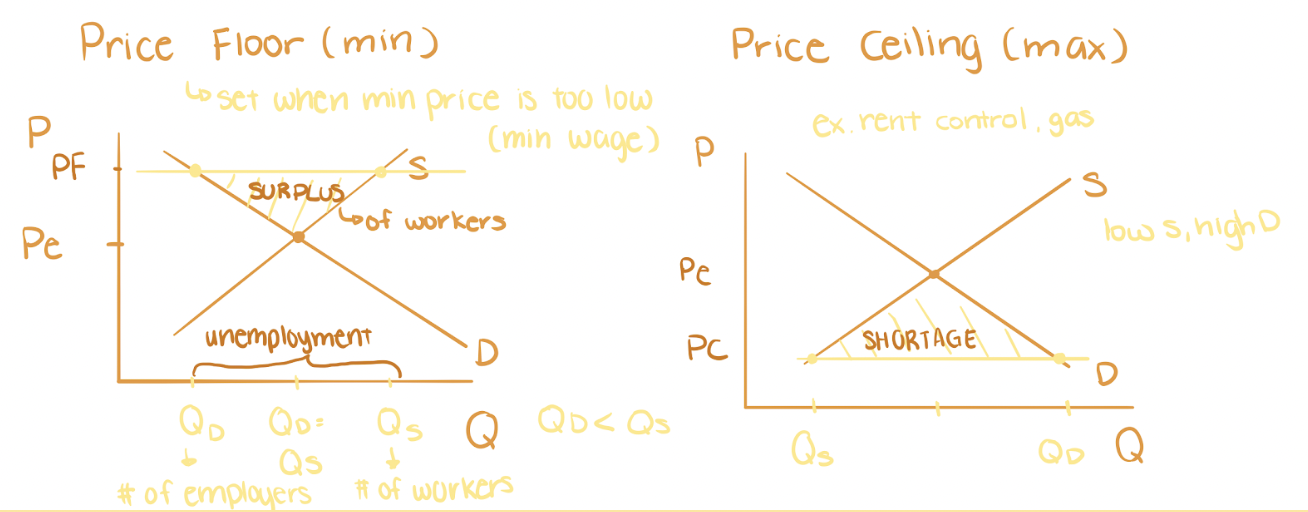 Price Floor (min)
↳ set when min price is too low
(min wage)
P
PF
S
SURPLUS
↳ of workers
Pe
unemployment
D
QD QD= QS Q QD < QS
↓ QS ↓
# of employers # of workers
Price Ceiling (max)
ex. rent control, gas
P
S
low s, high D
Pe
PC
SHORTAGE
D
Qs QD Q